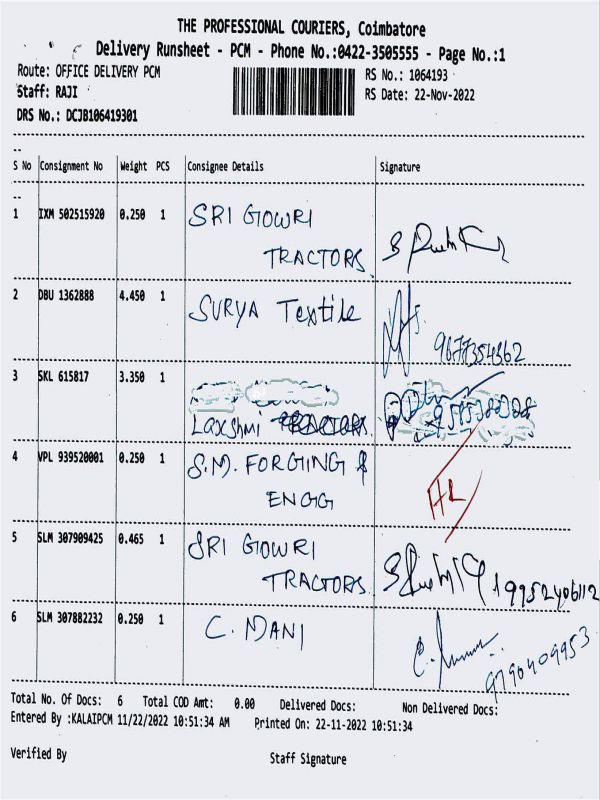 THE PROFESSIONAL COURIERS, Coimbatore
Delivery Runsheet - PCM - Phone No.:0422-3505555 - Page No.:1
Route: OFFICE DELIVERY PCM
RS No.: 1064193
Staff: RAJI
RS Date: 22-Nov-2022
DRS No.: DCJB106419301
S No Consignment No Weight PCS Consignee Details Signature
1 IXM 502515920 0.250 1 SRI GOWRI
TRACTORS
2 DBU 1362888 4.450 1 SURYA Textile
9677354362
3 SKL 615817 3.350 1
Laxshmi
4 VPL 939520001 0.250 1 S.M. FORGING &
ENGG
5 SLM 307909425 0.465 1 SRI GOWRI
TRACTORS
9952406112
6 SLM 307882232 0.250 1 C. MANI
9790409953
Total No. Of Docs: 6 Total COD Amt: 0.00 Delivered Docs: Non Delivered Docs:
Entered By :KALAIPCM 11/22/2022 10:51:34 AM Printed On: 22-11-2022 10:51:34
Verified By Staff Signature